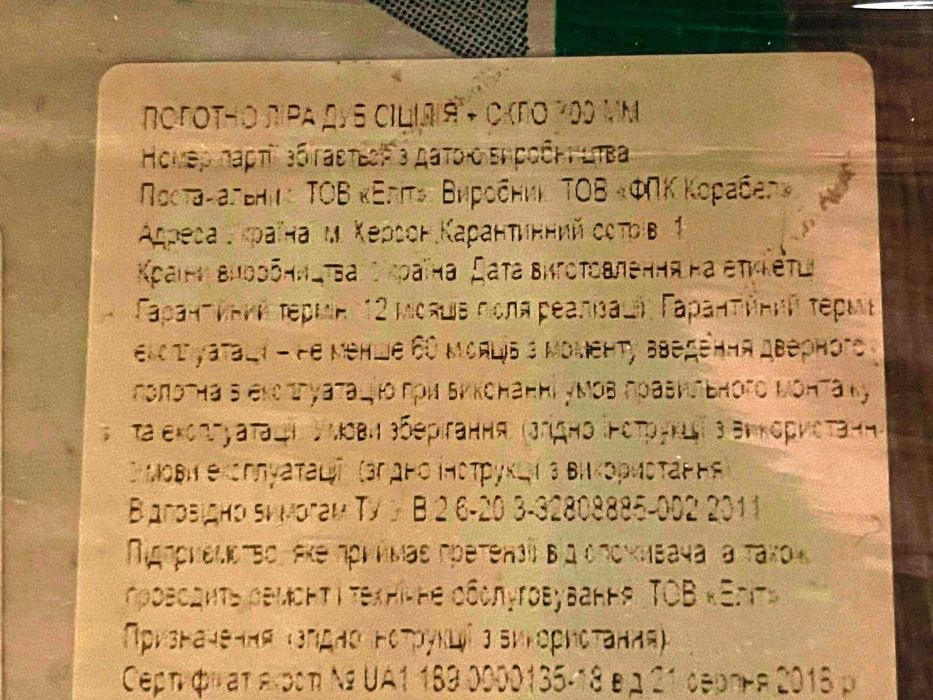 ПОЛОТНО ЛІРА ДУБ СІЦІЛІЯ + СКЛО 700 ММ
Номер партії збігається з датою виробництва
Постачальник: ТОВ «Еліт». Виробник: ТОВ «ФПК Корабел»
Адреса: Україна, м. Херсон, Карантинний острів, 1
Країна виробництва: Україна. Дата виготовлення на етикетці
Гарантійний термін: 12 місяців після реалізації. Гарантійний термін
експлуатації – не менше 60 місяців з моменту введення дверного
полотна в експлуатацію при виконанні умов правильного монтажу
та експлуатації. Умови зберігання: (згідно інструкції з використання)
Умови експлуатації: (згідно інструкції з використання)
Відповідно вимогам ТУ У В.2.6-20.3-32808885-002:2011
Підприємство, яке приймає претензії від споживача, а також
проводить ремонт і технічне обслуговування: ТОВ «Еліт»
Призначення: (згідно інструкції з використання).
Сертифікат якості № UA1.189.0000135-18 від 21 серпня 2018 р.